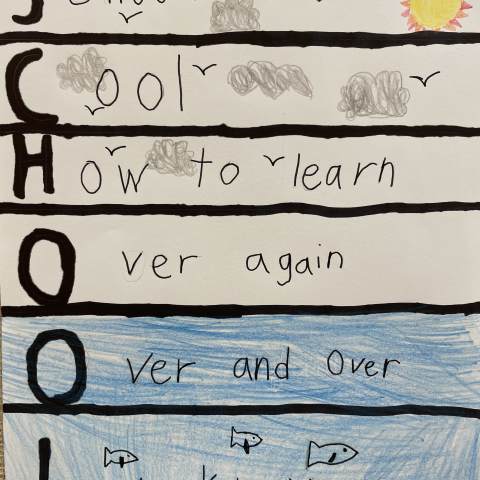 Cool
How to learn
Over again
Over and Over